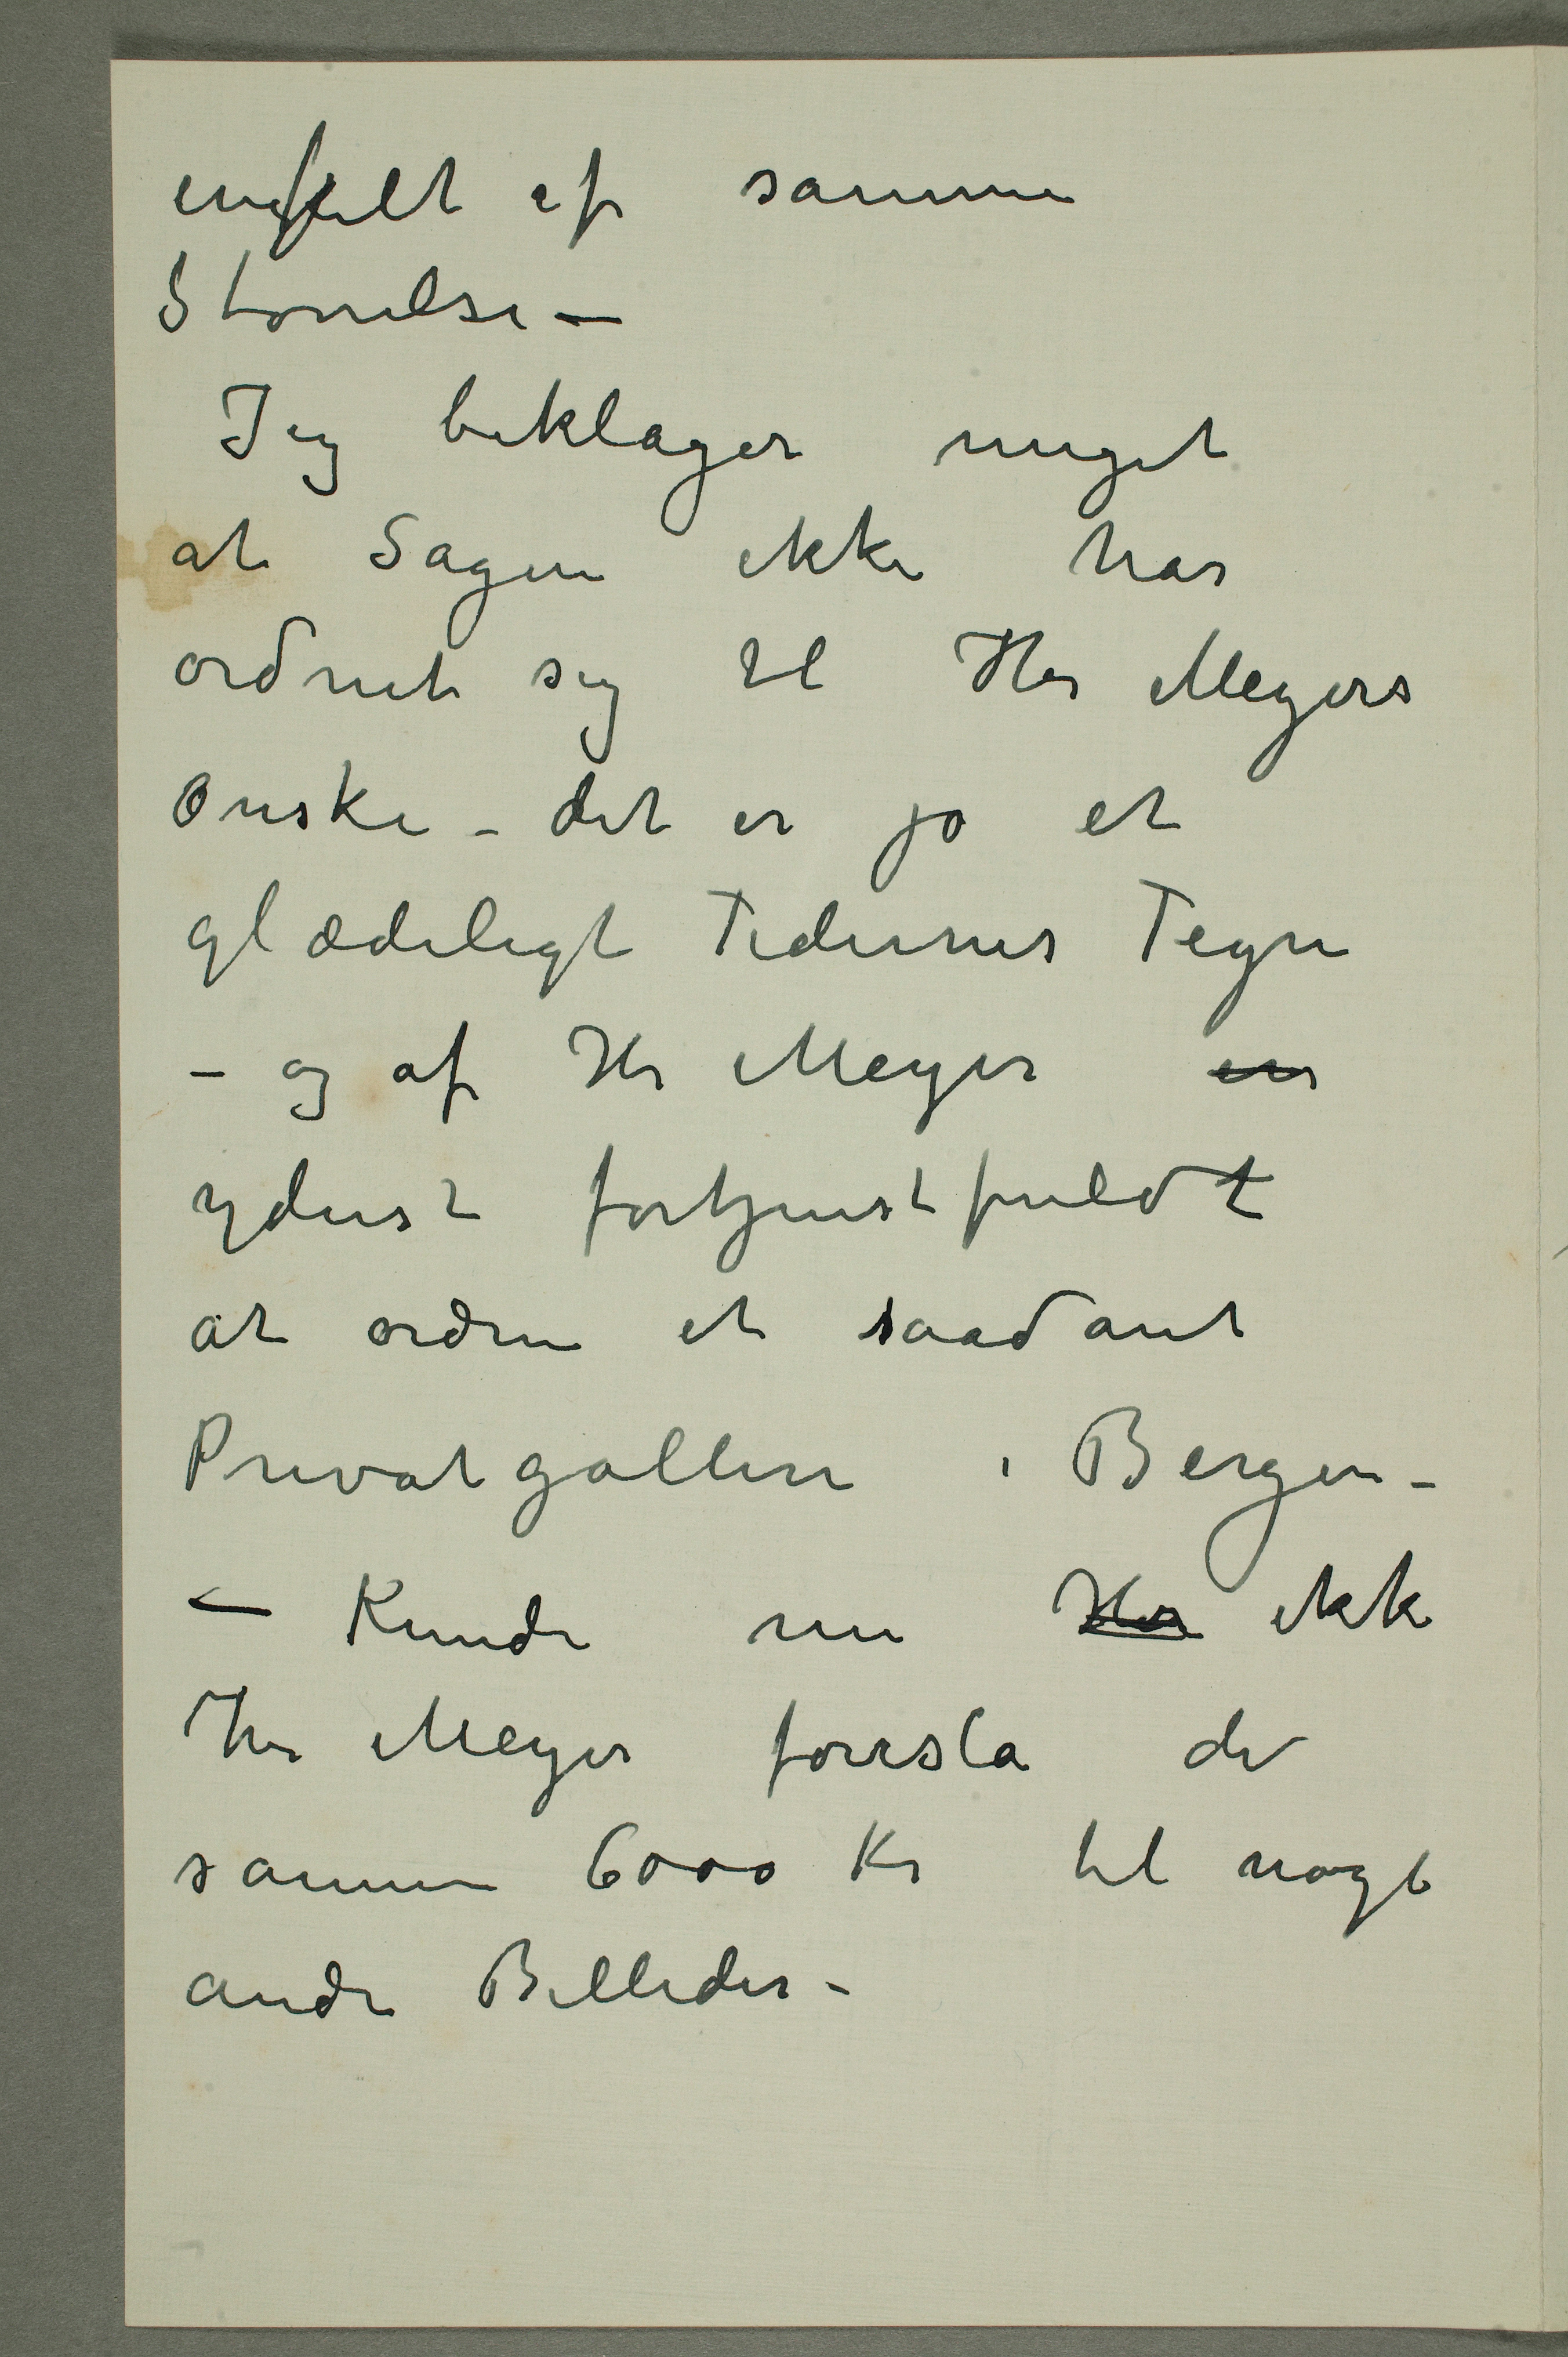 enkelt af samme
Størrelse –
Jeg beklager meget
at Sagen ikke har
ordnet sig til Her Meyers
Ønske – det er jo et
glædeligt Tidernes Tegn
– og af Hr Meyer er
yderst fortjenstfuldt
at ordne et saadant
Privatgalleri i Bergen –
– Kunde nu Her ikke
Her Meyer foreslå de
samme 6000 Kr til nogle
andre Billeder –